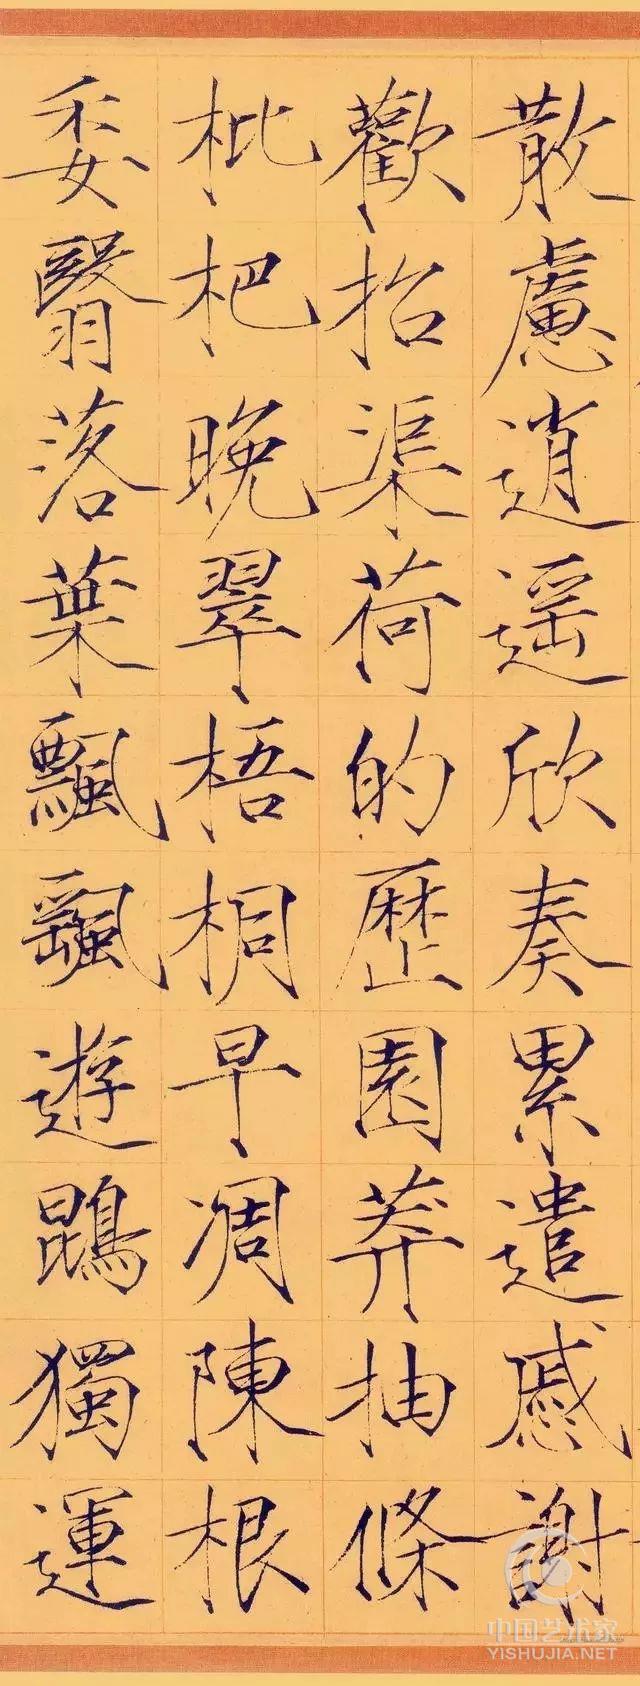 散慮逍遥欣奏累遣慼謝
歡招渠荷的歷園莽抽條
枇杷晚翠梧桐早凋陳根
委翳落葉飄颻遊鵾獨運
中国艺术家
YISHUJIA.NET